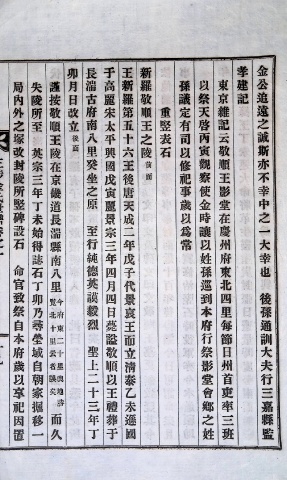 金公追遠之誠斯亦不幸中之一大幸也 後孫通訓大夫行三嘉縣監
孝建記
東京雜記云敬順王影堂在慶州府東北四里每節日州首吏率三班
以祭天啓丙寅觀察使金時讓以姓孫巡到本府行祭影堂會鄉之姓
孫議定有司以修祀事歲以爲常
重竪表石
新羅敬順王之陵 後面
王新羅第五十六王後唐天成二年戊子代景哀王而立清泰乙未遜國
于高麗宋太平興國戊寅麗景宗三年四月四日薨謚敬順以王禮葬于
長湍古府南八里癸坐之原 至行純德英謨毅烈 聖上二十三年丁
卯月日改立 後面
謹按敬順王陵在京畿道長湍縣南八里 今府東二十里輿地勝覽北十里云者誤矣 而久
失陵所至 英宗三年丁未始得誌石丁卯乃尋塋域自朝家掘移一
局內外之塚改封陵所竪碑設石 命官致祭自本府歲以享祀因置